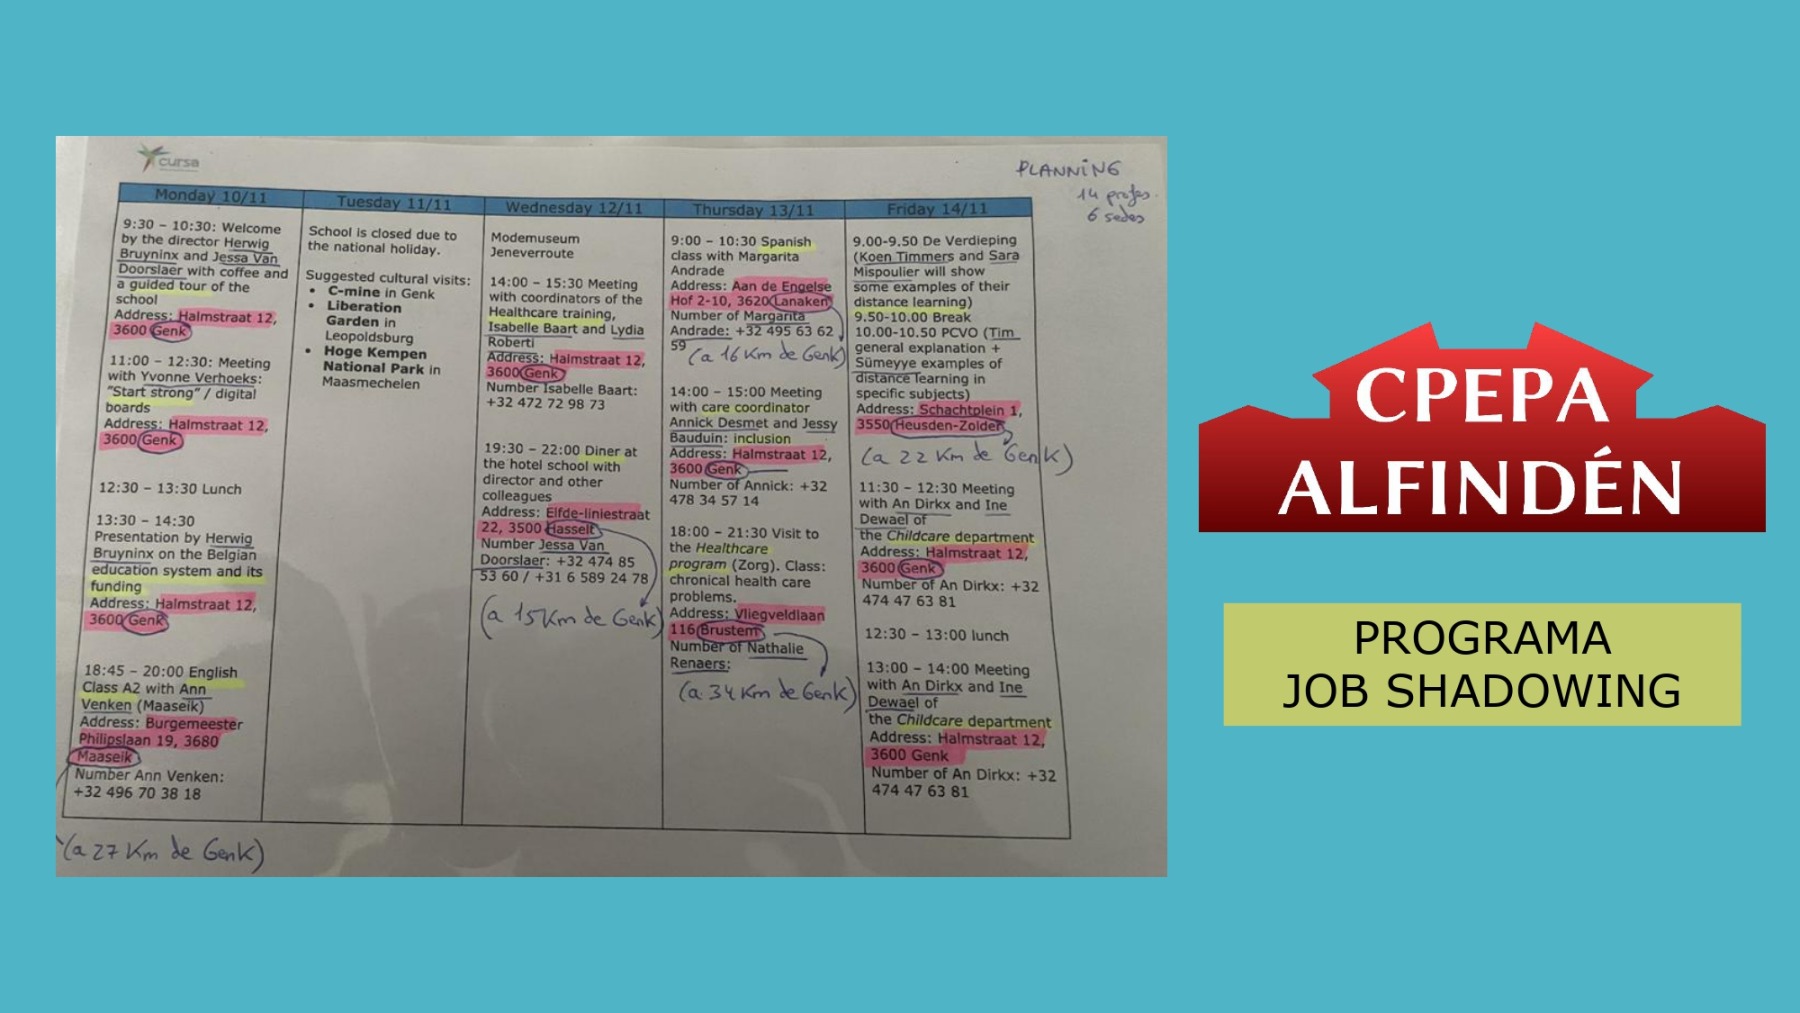 cursa
PLANNING
14 profes.
6 sedes
Monday 10/11
9:30 – 10:30: Welcome
by the director Herwig
Bruyninx and Jessa Van
Doorslaer with coffee and
a guided tour of the
school
Address: Halmstraat 12,
3600 Genk
11:00 – 12:30: Meeting
with Yvonne Verhoeks:
"Start strong" / digital
boards
Address: Halmstraat 12,
3600 Genk
12:30 – 13:30 Lunch
13:30 – 14:30
Presentation by Herwig
Bruyninx on the Belgian
education system and its
funding
Address: Halmstraat 12,
3600 Genk
18:45 – 20:00 English
Class A2 with Ann
Venken (Maaseik)
Address: Burgemeester
Philipslaan 19, 3680
Maaseik
Number Ann Venken:
+32 496 70 38 18
(a 27 Km de Genk)
Tuesday 11/11
School is closed due to
the national holiday.
Suggested cultural visits:
• C-mine in Genk
• Liberation
Garden in
Leopoldsburg
• Hoge Kempen
National Park in
Maasmechelen
Wednesday 12/11
Modemuseum
Jeneverroute
14:00 – 15:30 Meeting
with coordinators of the
Healthcare training,
Isabelle Baart and Lydia
Roberti
Address: Halmstraat 12,
3600 Genk
Number Isabelle Baart:
+32 472 72 98 73
19:30 – 22:00 Diner at
the hotel school with
director and other
colleagues
Address: Elfde-liniestraat
22, 3500 Hasselt
Number Jessa Van
Doorslaer: +32 474 85
53 60 / +31 6 589 24 78
(a 15 Km de Genk)
Thursday 13/11
9:00 – 10:30 Spanish
class with Margarita
Andrade
Address: Aan de Engelse
Hof 2-10, 3620 Lanaken
Number of Margarita
Andrade: +32 495 63 62
59
(a 16 Km de Genk)
14:00 – 15:00 Meeting
with care coordinator
Annick Desmet and Jessy
Bauduin: inclusion
Address: Halmstraat 12,
3600 Genk
Number of Annick: +32
478 34 57 14
18:00 – 21:30 Visit to
the Healthcare
program (Zorg). Class:
chronical health care
problems.
Address: Vliegveldlaan
116 Brustem
Number of Nathalie
Renaers:
(a 34 Km de Genk)
Friday 14/11
9.00-9.50 De Verdieping
(Koen Timmers and Sara
Mispoulier will show
some examples of their
distance learning)
9.50-10.00 Break
10.00-10.50 PCVO (Tim
general explanation +
Sümeyye examples of
distance learning in
specific subjects)
Address: Schachtplein 1,
3550 Heusden-Zolder
(a 22 Km de Genk)
11:30 – 12:30 Meeting
with An Dirkx and Ine
Dewael of
the Childcare department
Address: Halmstraat 12,
3600 Genk
Number of An Dirkx: +32
474 47 63 81
12:30 – 13:00 lunch
13:00 – 14:00 Meeting
with An Dirkx and Ine
Dewael of
the Childcare department
Address: Halmstraat 12,
3600 Genk
Number of An Dirkx: +32
474 47 63 81
CPEPA
ALFINDÉN
PROGRAMA
JOB SHADOWING